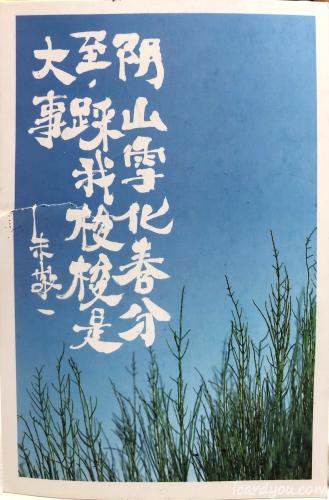 阴山雪化春分
至，踩我梭梭是
大事
—朱敬一
icardyou.com